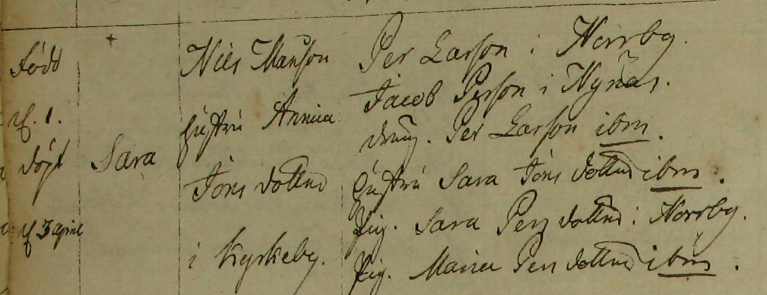 Född
d. 1.
döpt
d 3 april
+
Sara
Nils Manson
hustru Annica
Jöns dotter
i Kyrkeby.
Per Larson i Norrby.
Jacob Person i Nynäs.
dräng. Per Larson ibm.
hustru Sara Jöns dotter ibm.
pig. Sara Pers dotter i Norrby.
pig. Maria Pers dotter ibm.